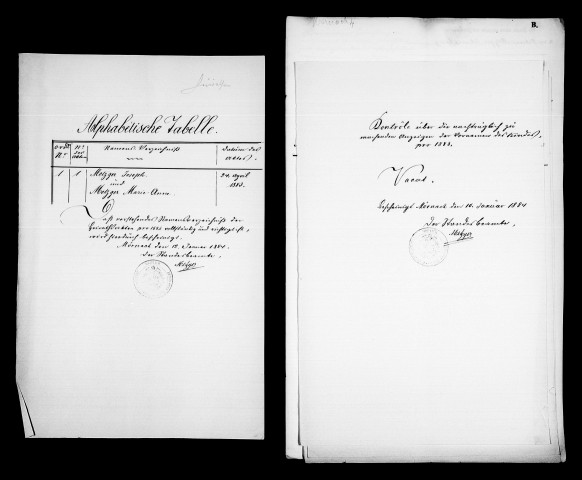 Alphabetische Tabelle.
Ord. N° N° des Akts. Namens-Verzeichniß Datum des Aktes.
1 1 Metzger Joseph 24. April
und 1883.
Metzger Maria-Anna
Daß vorstehendes Namensverzeichniß der
Heirathsakten per 1883 vollständig und richtig ist,
wird hierdurch bescheinigt.
Mörnach den 12. Januar 1884.
Der Standesbeamte,
Metzger
B.
Kontrole über die nachträglich zu
machenden Anzeigen der Vornamen des Kindes,
per 1883.
Vacat.
Bescheinigt Mörnach den 10. Januar 1884
Der Standesbeamte,
Metzger